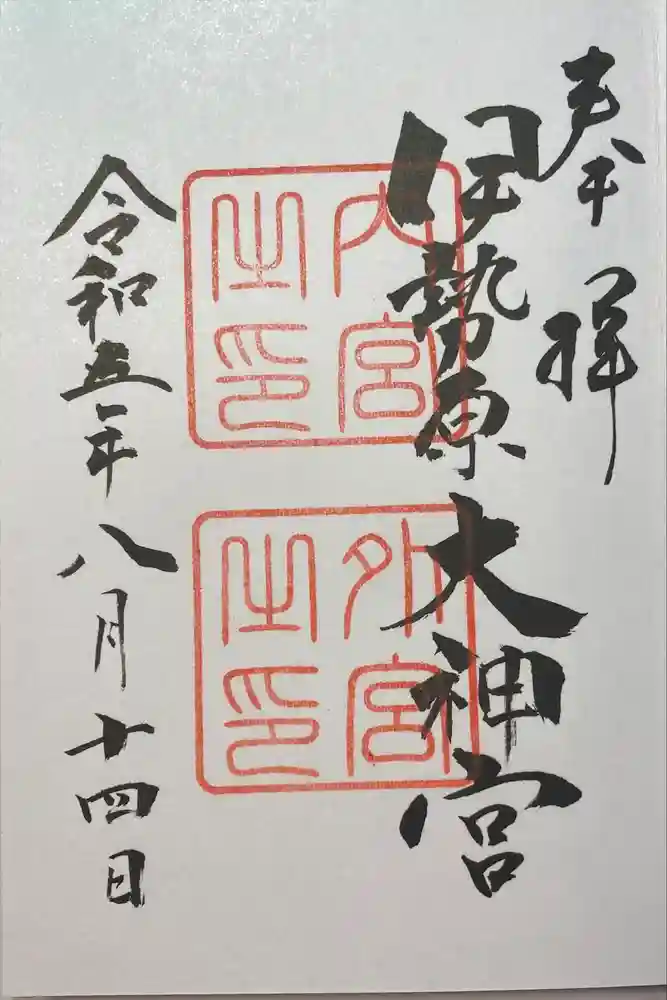 奉拝
伊勢原大神宮
内宮之印
外宮之印
令和五年八月十四日